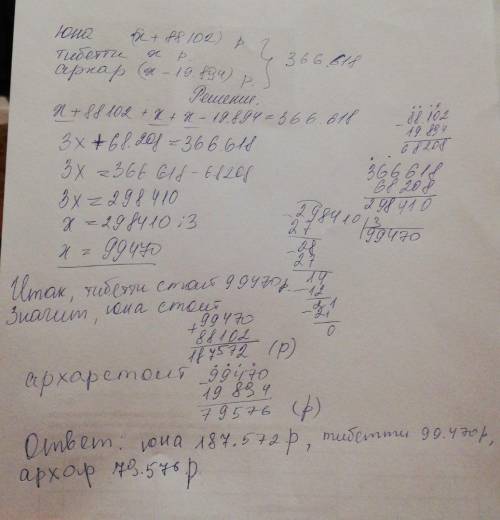 Юна (x + 88102) р.
тибетти x р.
архар (x - 19.894) р.
} 366.618
Решения.
x + 88102 + x + x - 19.894 = 366.618
3x + 68.208 = 366618
3x = 366 618 - 68208
3x = 298410
x = 298410 : 3
x = 99470
- 88102
19894
68208
- 366618
68208
298410
- 298410 | 3
27 99470
- 28
27
14
- 12
21
- 21
0
Итак, тибетти стоит 99470р.
Значит, юна стоит
+ 99470
88102
187572 (р)
архар стоит - 99470
19894
79576 (р)
Ответ: юна 187.572р, тибетти 99.470р,
архар 79.576 р.